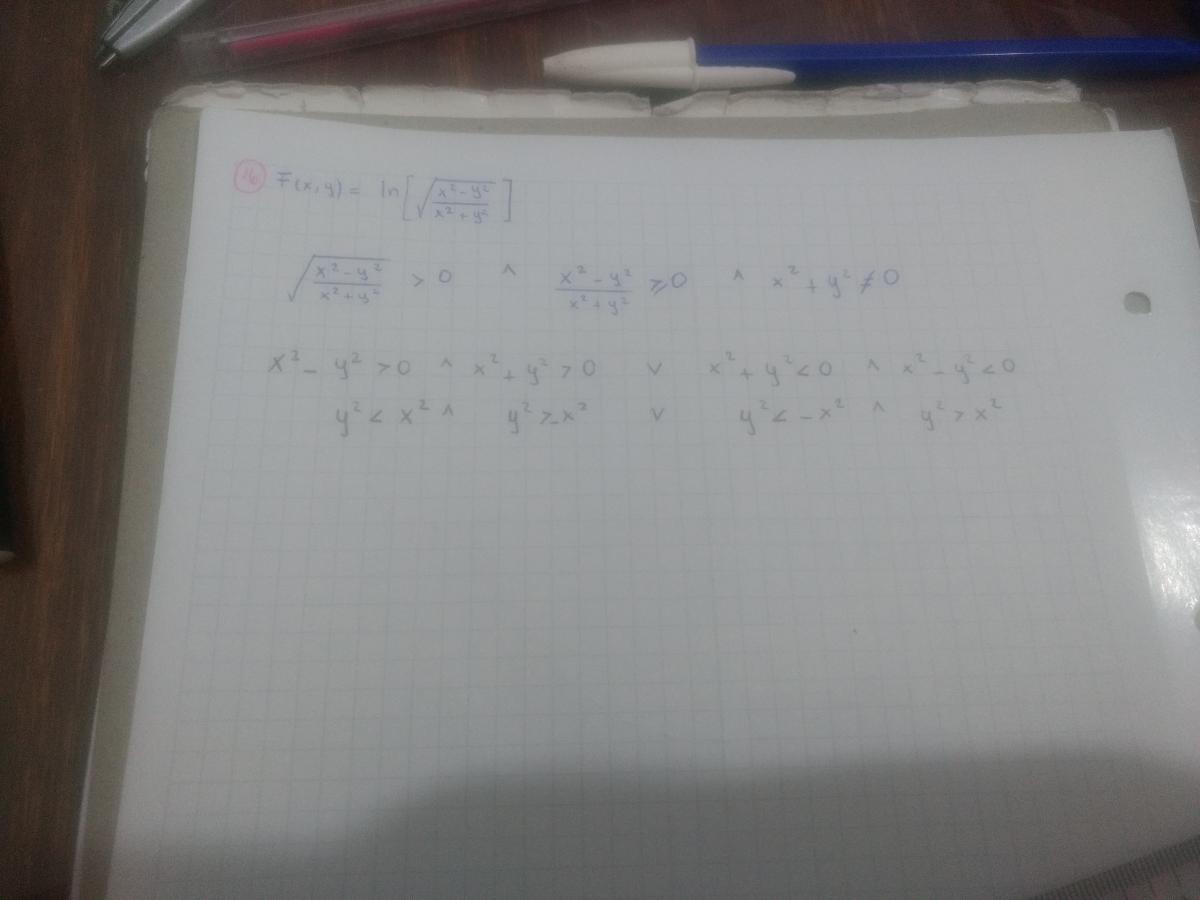 16 F(x,y) = ln[√((x²-y²)/(x²+y²))]
√((x²-y²)/(x²+y²)) > 0 ∧ (x²-y²)/(x²+y²) ⩾ 0 ∧ x²+y² ≠ 0
x²-y² > 0 ∧ x²+y² > 0 ∨ x²+y² < 0 ∧ x²-y² < 0
y² < x² ∧ y² > -x² ∨ y² < -x² ∧ y² > x²